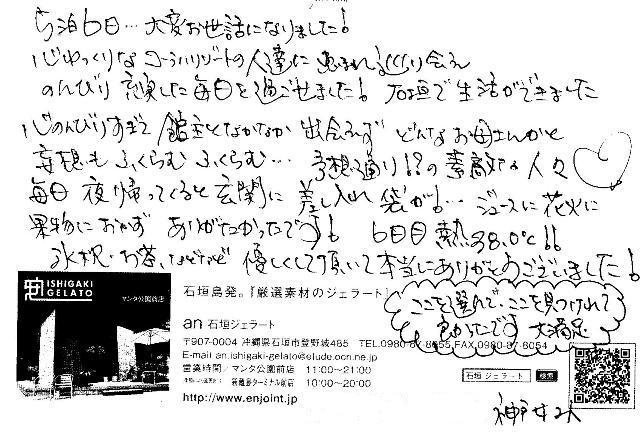 5泊6日…大変お世話になりました!
心ゆっくりなコーラルリゾートの人達に恵まれ!巡り会え
のんびり 充実した毎日を過ごせました! 石垣で生活ができました
心のんびりすぎて 館主となかなか出会えず どんなお母さんかと
妄想もふくらむふくらむ… 予想通り!?の素敵な人々♡
毎日 夜帰ってくると玄関に差し入れ袋が!… ジュースに花火に
果物におかず ありがたかったです! 6日目 熱38.0℃!!
氷枕・お茶、などなど 優しくして頂いて本当にありがとうございました!
ISHIGAKI
GELATO
マンタ公園前店
石垣島発。『厳選素材のジェラート』
an 石垣ジェラート
〒907-0004 沖縄県石垣市登野城465 TEL.0980-87-8655 FAX.0980-87-8054
E-mail an.ishigaki-gelato@elude.ocn.ne.jp
営業時間/マンタ公園前店 11:00~21:00
離島ターミナル前店 10:00~20:00
http://www.enjoint.jp
石垣 ジェラート 検索
ここを選んで、ここを見つけれて
良かったです 大満足
神戸 女2人